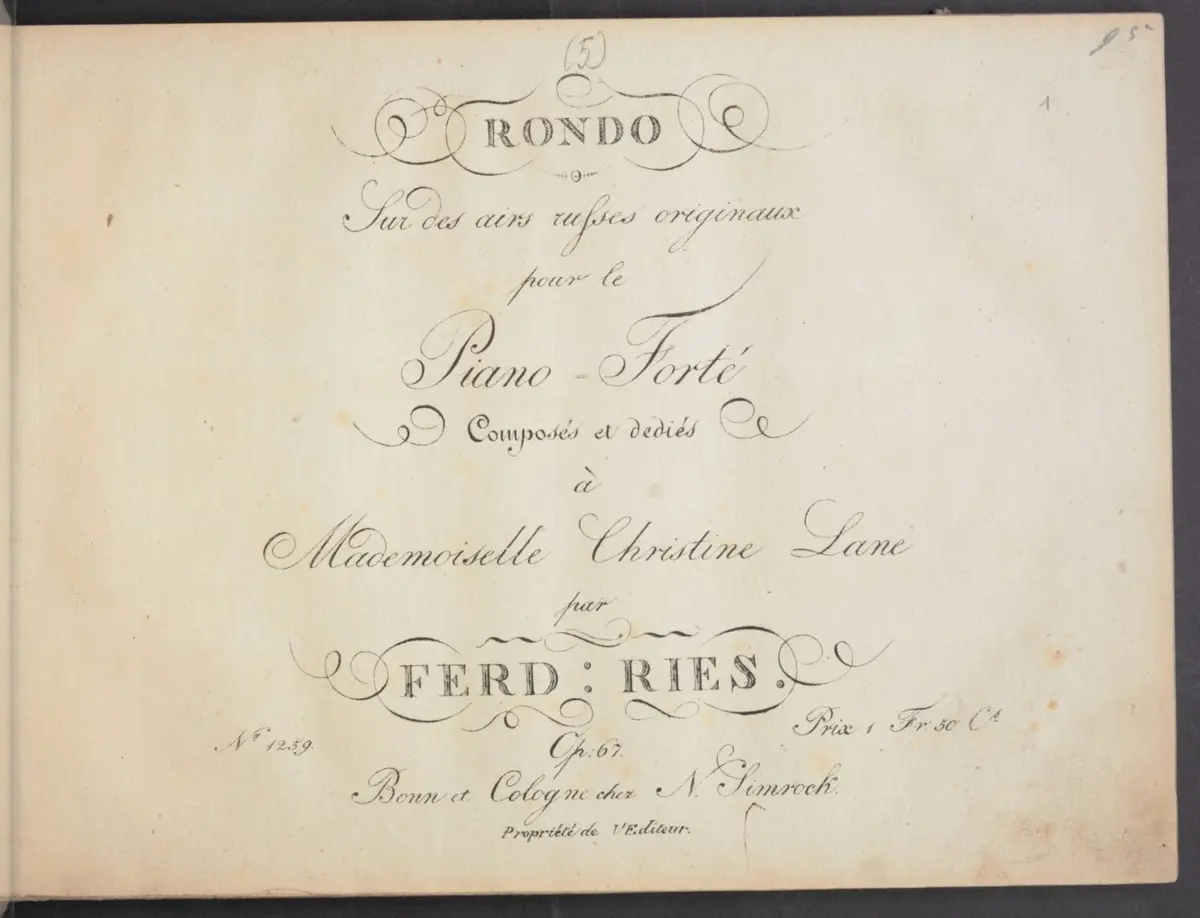 (5)
95
1
RONDO
Sur des airs russes originaux
pour le
Piano - Forté
Composés et dediés
à
Mademoiselle Christine Lane
par
FERD : RIES.
Prix 1 Fr: 50 Cs
No 1259.
Op: 67.
Bonn et Cologne chez N. Simrock.
Propriété de l'Editeur.